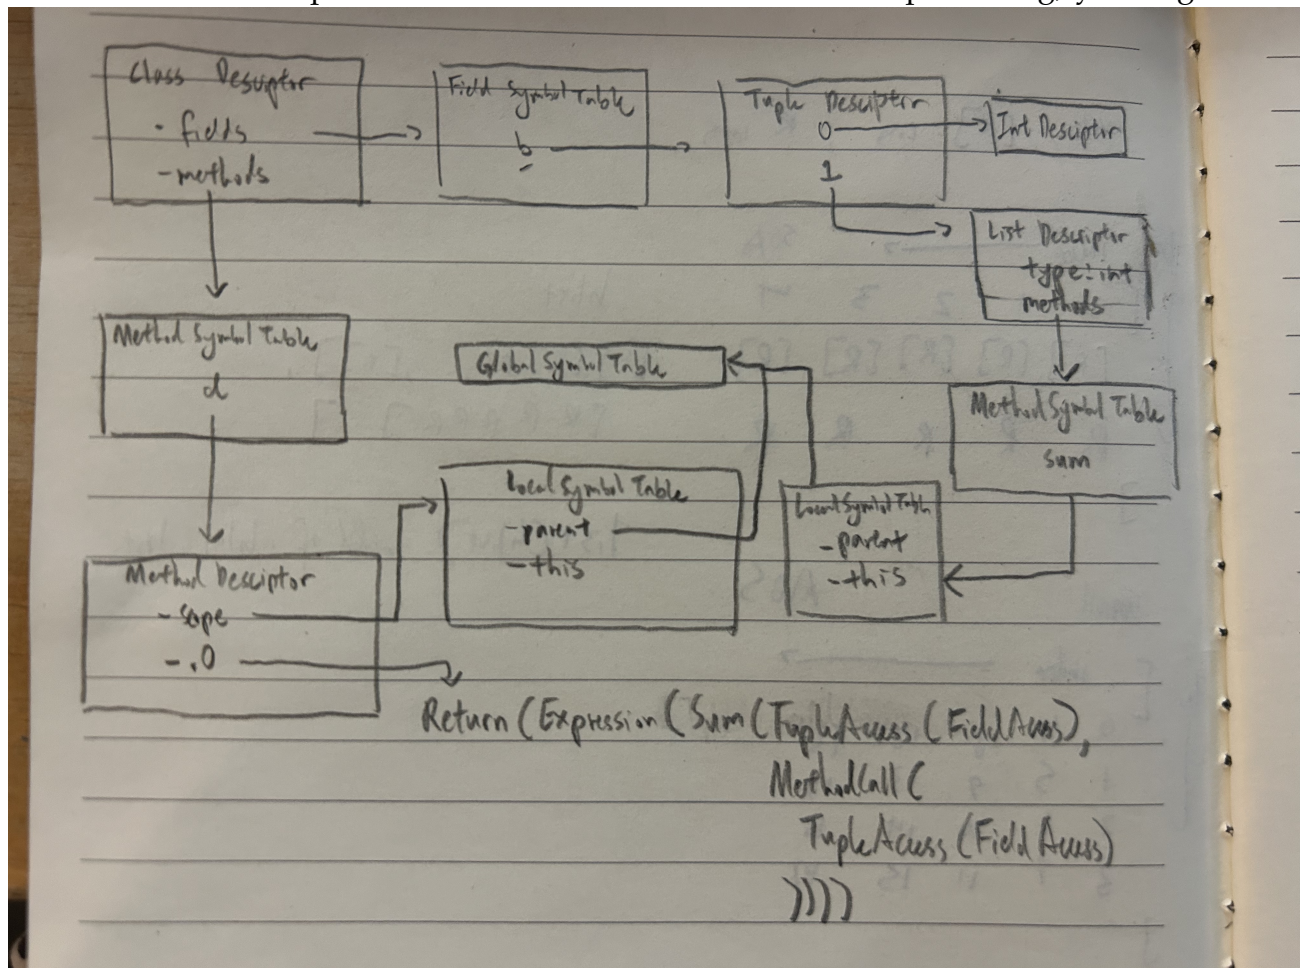 Class Desciptor
- fields
- methods
Field Symbol Table
b
Tuple Desciptor
0
1
Int Desciptor
List Desciptor
type: int
methods
Method Symbol Table
d
Global Symbol Table
Method Symbol Table
sum
Local Symbol Table
- parent
- this
Local Symbol Table
- parent
- this
Method Desciptor
- sope
- .0
Return (Expression (Sum (TupleAccess (FieldAccess),
MethodCall (
TupleAccess (Field Access)
))))